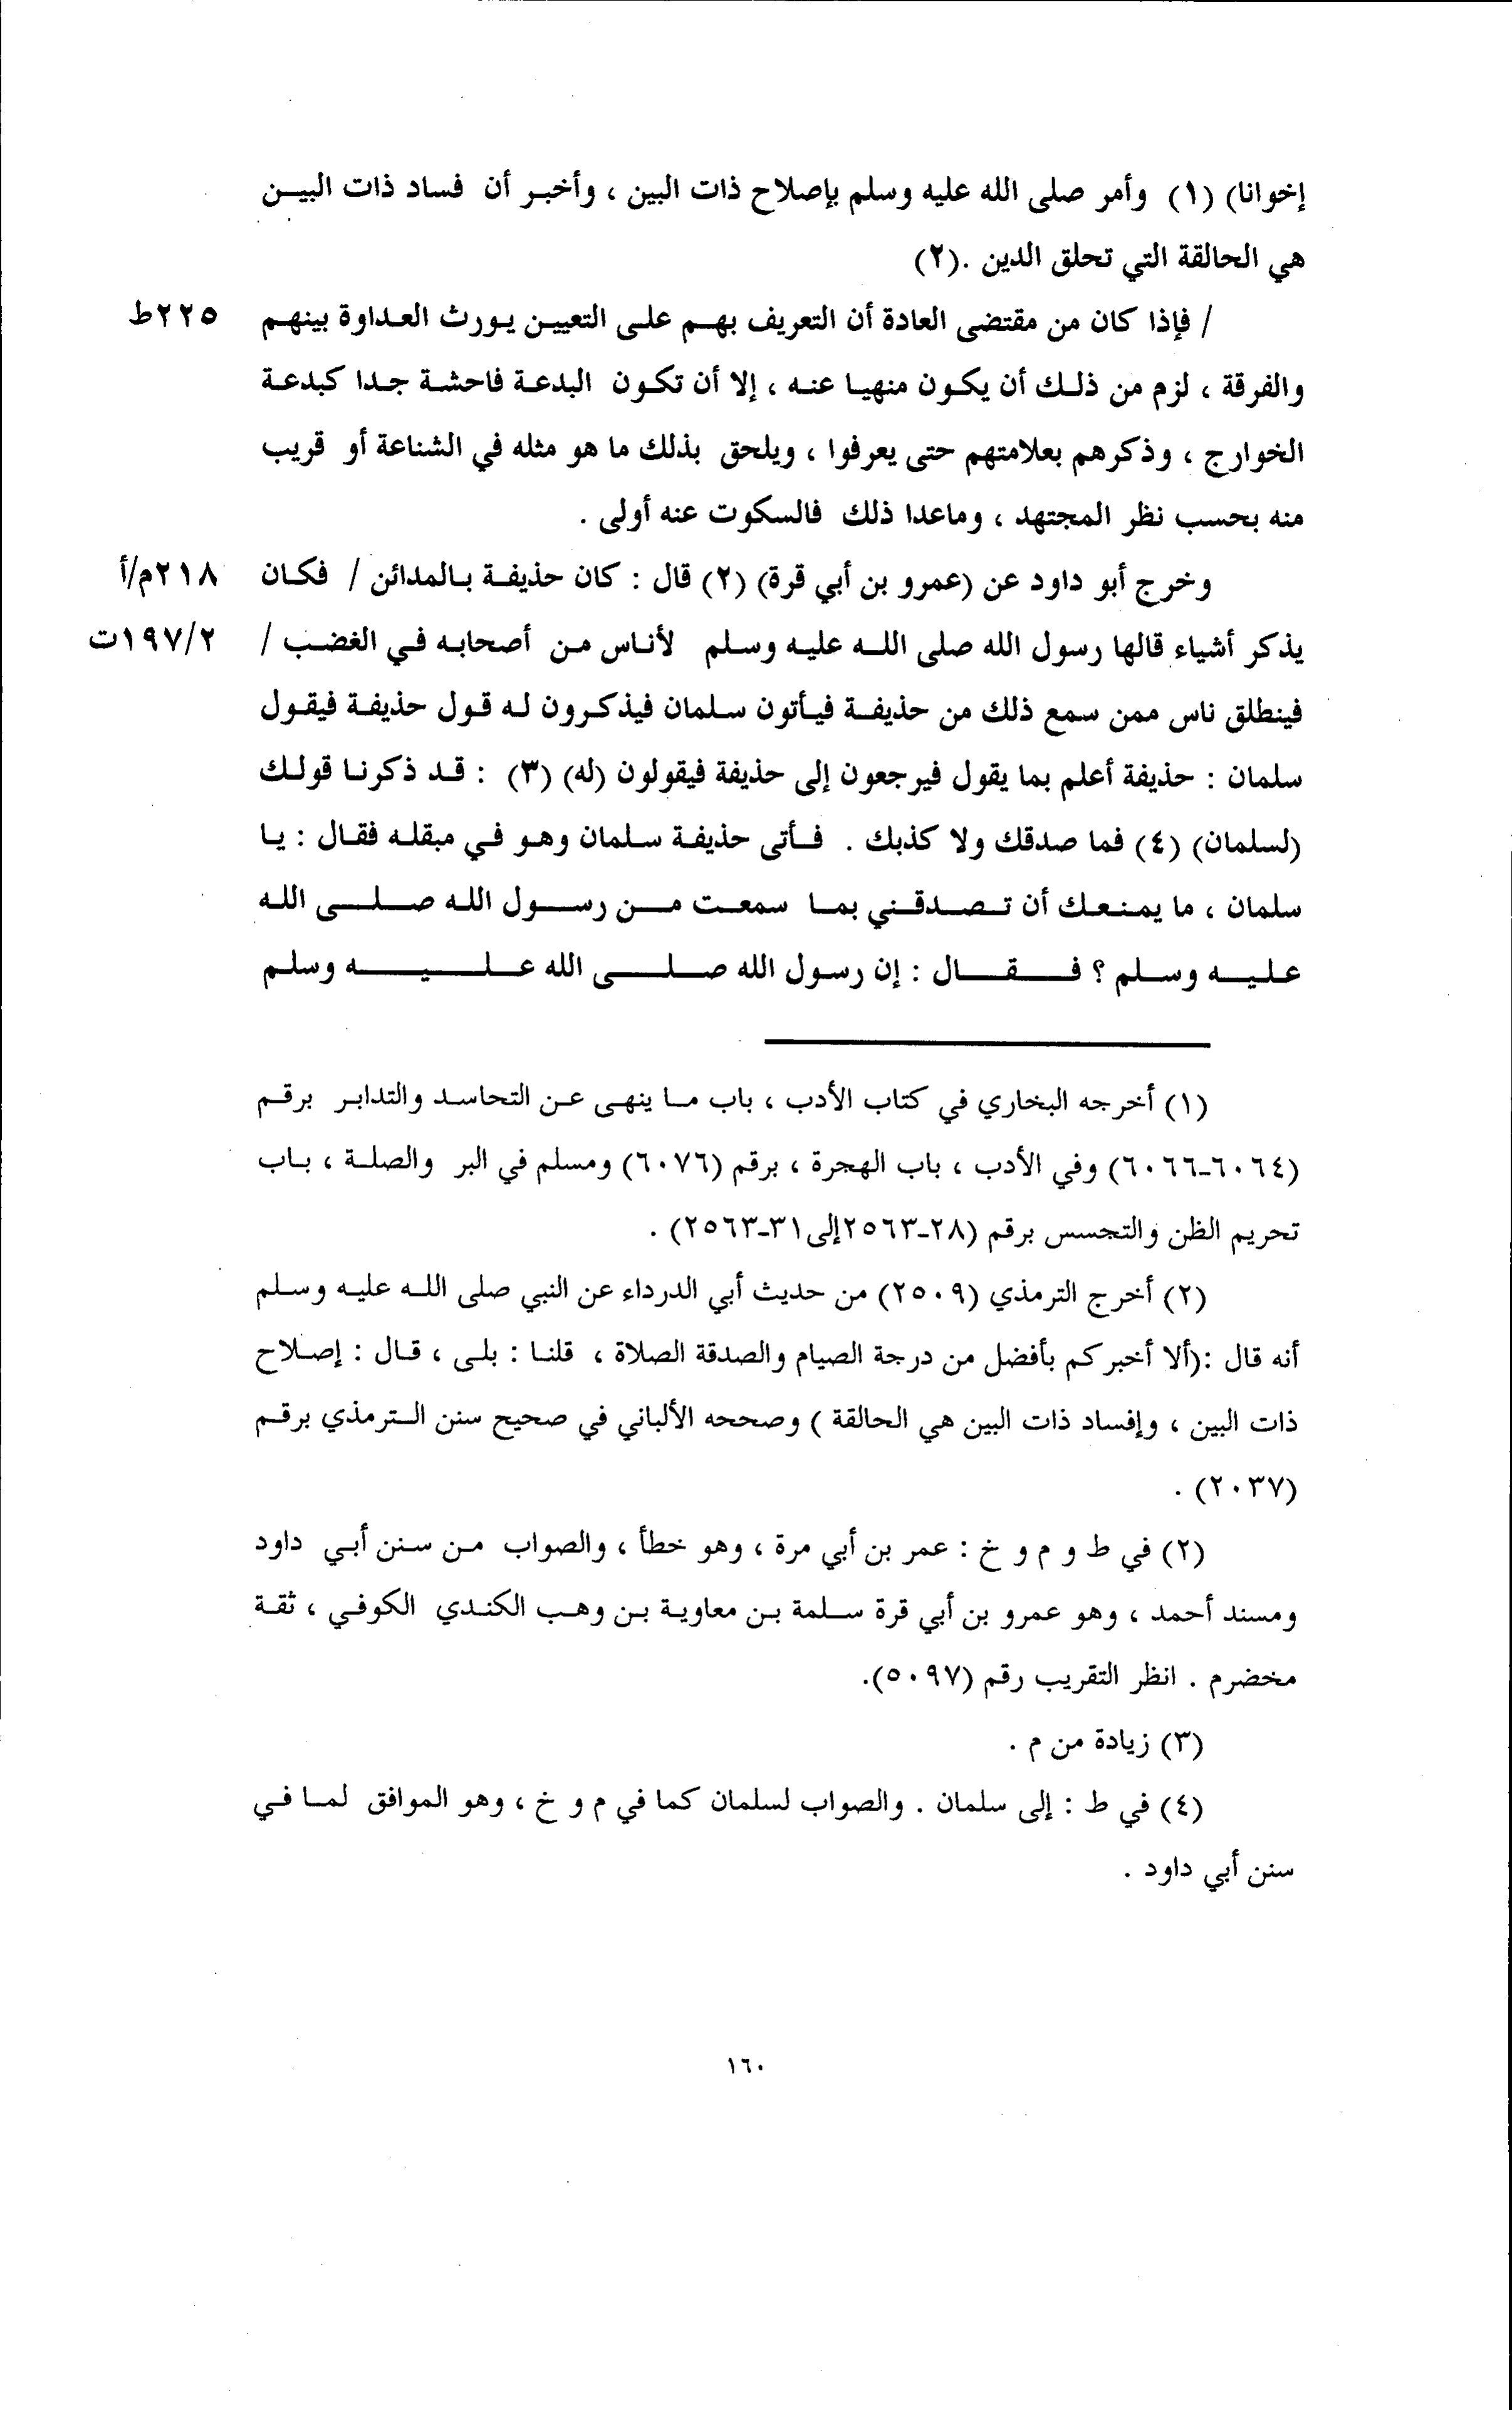 إخوانا) (١) وأمر صلى الله عليه وسلم بإصلاح ذات البين ، وأخبر أن فساد ذات البين
هي الحالقة التي تحلق الدين .(٢)
/ فإذا كان من مقتضى العادة أن التعريف بهم على التعيين يورث العداوة بينهم ٢٢٥ط
والفرقة ، لزم من ذلك أن يكون منهيا عنه ، إلا أن تكون البدعة فاحشة جدا كبدعة
الخوارج ، وذكرهم بعلامتهم حتى يعرفوا ، ويلحق بذلك ما هو مثله في الشناعة أو قريب
منه بحسب نظر المجتهد ، وماعدا ذلك فالسكوت عنه أولى .
وخرج أبو داود عن (عمرو بن أبي قرة) (٢) قال : كان حذيفة بالمدائن / فكان ٢١٨م/أ
يذكر أشياء قالها رسول الله صلى الله عليه وسلم لأناس من أصحابه في الغضب / ١٩٧/٢ت
فينطلق ناس ممن سمع ذلك من حذيفة فيأتون سلمان فيذكرون له قول حذيفة فيقول
سلمان : حذيفة أعلم بما يقول فيرجعون إلى حذيفة فيقولون (له) (٣) : قد ذكرنا قولك
(لسلمان) (٤) فما صدقك ولا كذبك . فأتى حذيفة سلمان وهو في مبقله فقال : يا
سلمان ، ما يمنعك أن تصدقني بما سمعت من رسول الله صلى الله
عليه وسلم ؟ فقال : إن رسول الله صلى الله عليه وسلم
(١) أخرجه البخاري في كتاب الأدب ، باب ما ينهى عن التحاسد والتدابر برقم
(٦٠٦٤-٦٠٦٦) وفي الأدب ، باب الهجرة ، برقم (٦٠٧٦) ومسلم في البر والصلة ، باب
تحريم الظن والتجسس برقم (٢٨-٢٥٦٣إلى٣١-٢٥٦٣) .
(٢) أخرج الترمذي (٢٥٠٩) من حديث أبي الدرداء عن النبي صلى الله عليه وسلم
أنه قال :(ألا أخبركم بأفضل من درجة الصيام والصدقة الصلاة ، قلنا : بلى ، قال : إصلاح
ذات البين ، وإفساد ذات البين هي الحالقة ) وصححه الألباني في صحيح سنن الترمذي برقم
(٢٠٣٧) .
(٢) في ط و م و خ : عمر بن أبي مرة ، وهو خطأ ، والصواب من سنن أبي داود
ومسند أحمد ، وهو عمرو بن أبي قرة سلمة بن معاوية بن وهب الكندي الكوفي ، ثقة
مخضرم . انظر التقريب رقم (٥٠٩٧).
(٣) زيادة من م .
(٤) في ط : إلى سلمان . والصواب لسلمان كما في م و خ ، وهو الموافق لما في
سنن أبي داود .
١٦٠